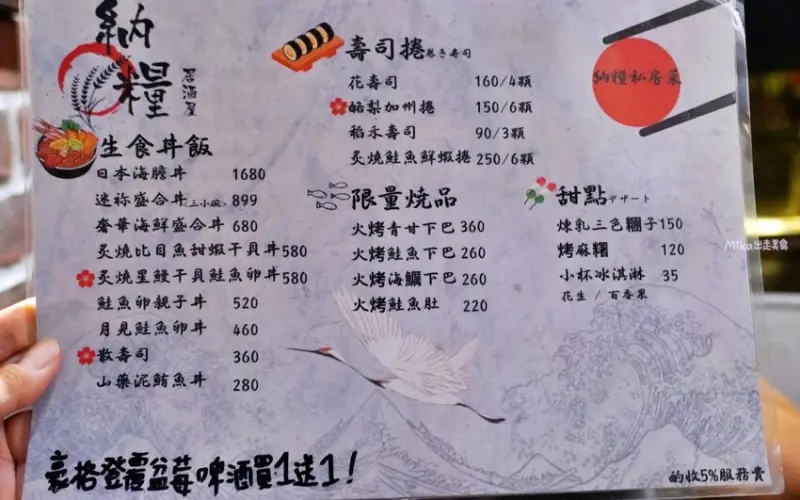 納糧
居酒屋
生食丼飯
日本海膽丼 1680
迷祢盛合丼(三小碗) 899
奢華海鮮盛合丼 680
炙燒比目魚甜蝦干貝丼 580
炙燒星鰻干貝鮭魚卵丼 580
鮭魚卵親子丼 520
月見鮭魚卵丼 460
散壽司 360
山藥泥鮪魚丼 280
壽司捲 巻き寿司
花壽司 160/4顆
酪梨加州捲 150/6顆
稻禾壽司 90/3顆
炙燒鮭魚鮮蝦捲 250/6顆
限量燒品
火烤青甘下巴 360
火烤鮭魚下巴 260
火烤海鱺下巴 260
火烤鮭魚肚 220
納糧私房菜
甜點 デザート
煉乳三色糰子 150
烤麻糬 120
小杯冰淇淋 35
花生 / 百香果
Mika出走美食
豪格登霞盆莓啤酒買1送1!
酌收5%服務費